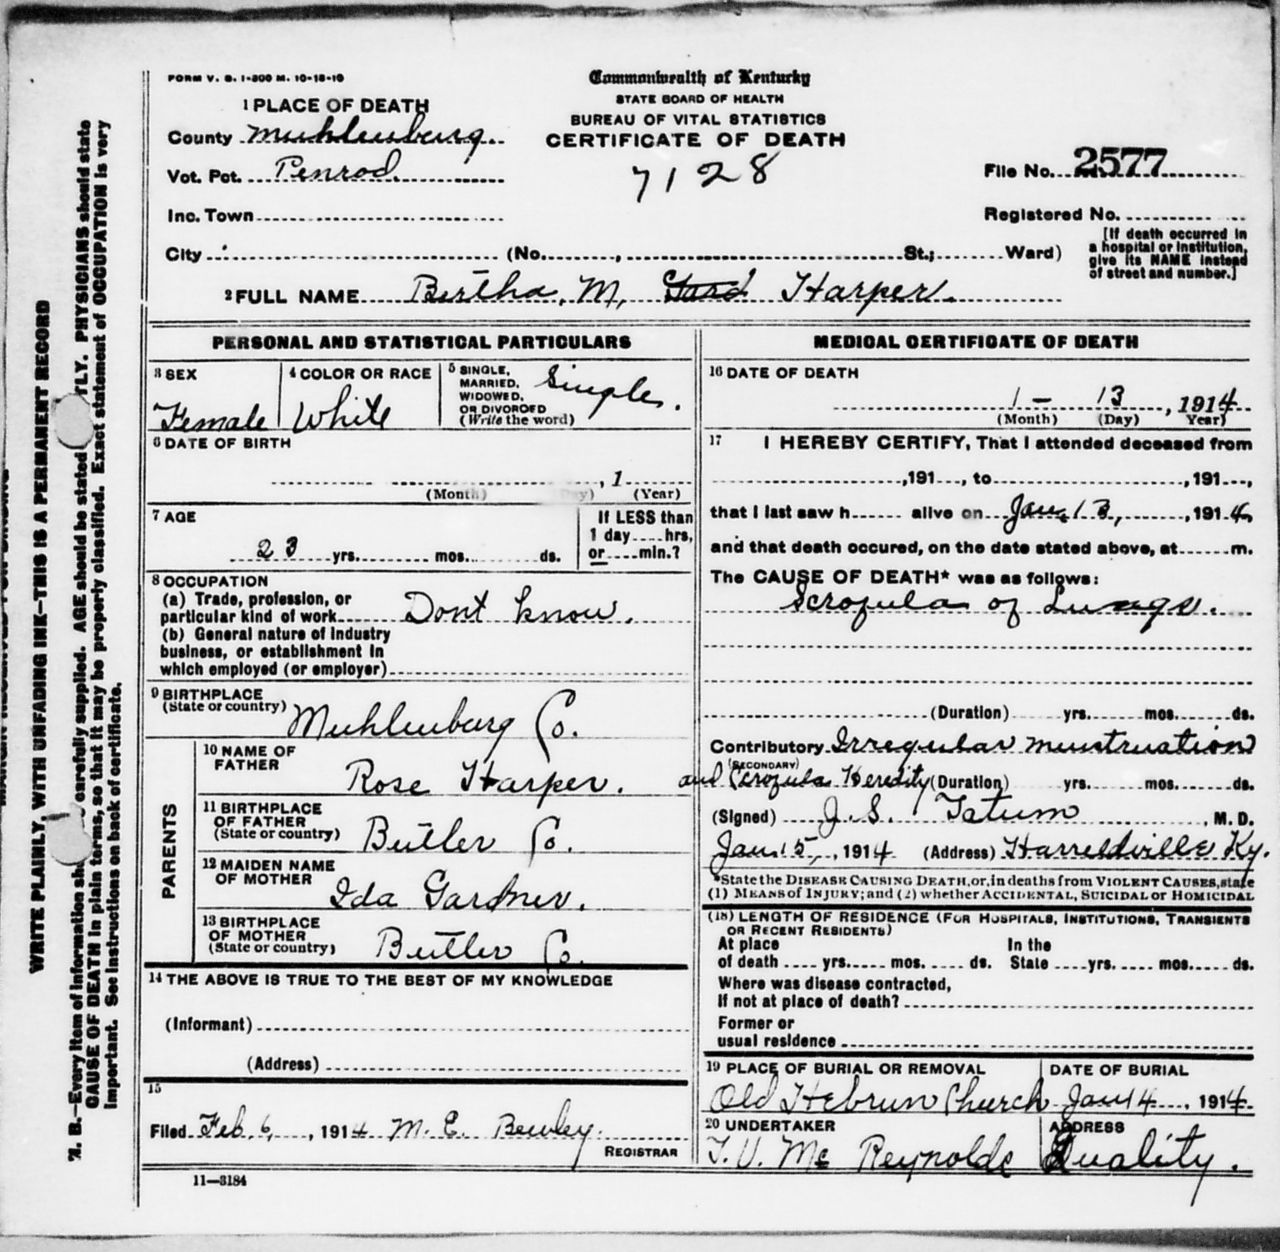 FORM V. S. 1-200 M. 10-18-10
Commonwealth of Kentucky
STATE BOARD OF HEALTH
BUREAU OF VITAL STATISTICS
CERTIFICATE OF DEATH
7128
1 PLACE OF DEATH
County Muhlenburg
Vot. Pct. Penrod
Inc. Town
City (No. , St.; Ward)
File No. 2577
Registered No.
[If death occurred in
a hospital or institution,
give its NAME instead
of street and number.]
2 FULL NAME Bertha, M, Harper.
PERSONAL AND STATISTICAL PARTICULARS
3 SEX
Female
4 COLOR OR RACE
White
5 SINGLE,
MARRIED,
WIDOWED,
OR DIVORCED
(Write the word)
Single.
6 DATE OF BIRTH
, 1
(Month) (Day) (Year)
7 AGE
23 yrs. mos. ds.
If LESS than
1 day....hrs,
or....min.?
8 OCCUPATION
(a) Trade, profession, or
particular kind of work Dont know.
(b) General nature of industry
business, or establishment in
which employed (or employer)
9 BIRTHPLACE
(State or country) Muhlenburg Co.
PARENTS
10 NAME OF
FATHER
Rose Harper.
11 BIRTHPLACE
OF FATHER
(State or country) Butler Co.
12 MAIDEN NAME
OF MOTHER
Ida Gardner.
13 BIRTHPLACE
OF MOTHER
(State or country) Butler Co.
14 THE ABOVE IS TRUE TO THE BEST OF MY KNOWLEDGE
(Informant)
(Address)
15
Filed Feb. 6, , 1914 M. E. Bewley.
REGISTRAR
11—3184
MEDICAL CERTIFICATE OF DEATH
16 DATE OF DEATH
1 - 13 , 1914
(Month) (Day) Year)
17 I HEREBY CERTIFY, That I attended deceased from
,191...., to ,191....,
that I last saw h alive on Jan. 13, ,1914,
and that death occured, on the date stated above, at......m.
The CAUSE OF DEATH* was as follows:
Scrofula of Lungs.
(Duration) yrs. mos. ds.
Contributory Irregular menstruation
(SECONDARY)
and Scrofula Heredity (Duration) yrs. mos. ds.
(Signed) J. S. Tatum , M. D.
Jan. 15, , 1914 (Address) Harreldville Ky.
*State the DISEASE CAUSING DEATH, or, in deaths from VIOLENT CAUSES, state
(1) MEANS of INJURY; and (2) whether ACCIDENTAL, SUICIDAL or HOMICIDAL
(18) LENGTH OF RESIDENCE (FOR HOSPITALS, INSTITUTIONS, TRANSIENTS
OR RECENT RESIDENTS)
At place In the
of death .... yrs. mos. ds. State ....yrs. mos. ds.
Where was disease contracted,
If not at place of death?
Former or
usual residence
19 PLACE OF BURIAL OR REMOVAL
Old Hebrun Church
DATE OF BURIAL
Jan 14 , 1914
20 UNDERTAKER
T. V. McReynolds
ADDRESS
Quality.
WRITE PLAINLY, WITH UNFAINDING INK—THIS IS A PERMANENT RECORD
N. B.—Every item of information carefully supplied. AGE should be stated PHYSICIANS should state
CAUSE OF DEATH in plain terms, so that it may be properly classified. Exact statement of OCCUPATION is very
important. See instructions on back of certificate.